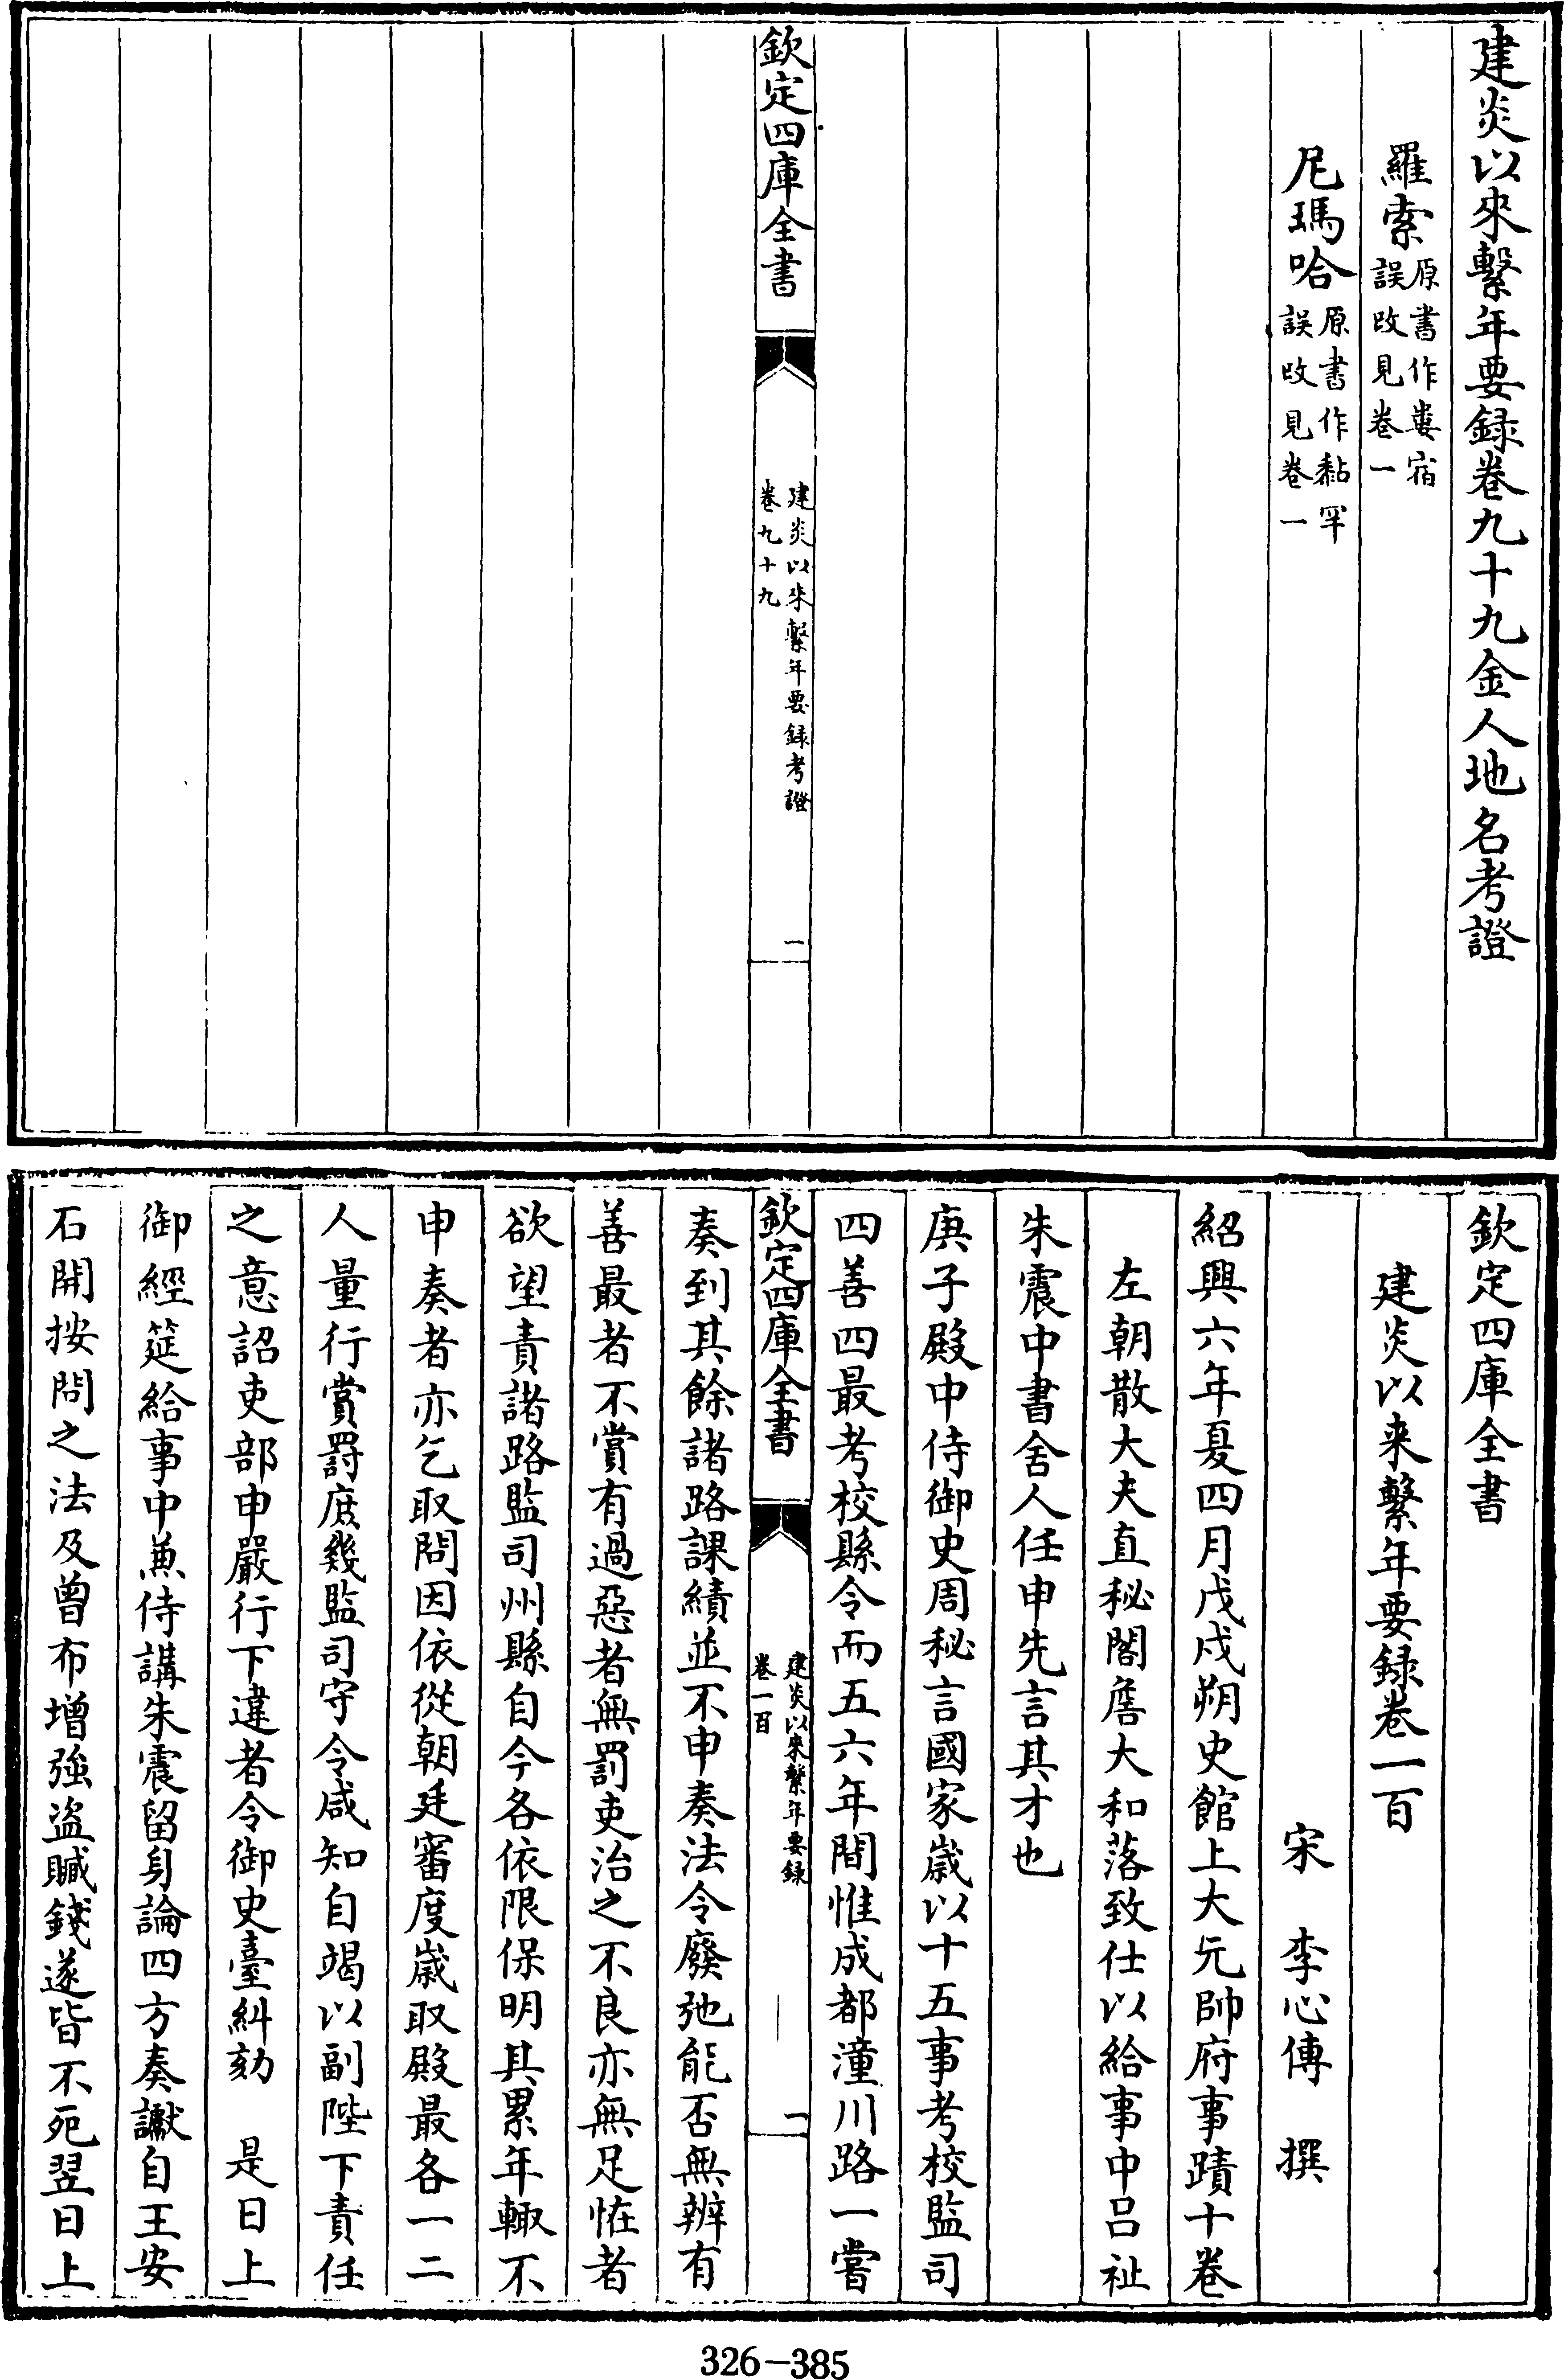 建炎以來繫年要録卷九十九金人地名考證
羅索原書作婁宿
誤改見卷一
尼瑪哈原書作黏罕
誤改見卷一
欽定四庫全書
建炎以來繫年要録考證
卷九十九
一
欽定四庫全書
建炎以来繫年要録卷一百
宋 李心傳 撰
紹興六年夏四月戊戌朔史館上大元帥府事蹟十卷
左朝散大夫直秘閣詹大和落致仕以給事中呂祉
朱震中書舍人任申先言其才也
庚子殿中侍御史周秘言國家歳以十五事考校監司
四善四最考校縣令而五六年間惟成都潼川路一嘗
欽定四庫全書
建炎以來繫年要録
卷一百
一
奏到其餘諸路課績並不申奏法令廢弛能否無辨有
善最者不賞有過惡者無罰吏治之不良亦無足怪者
欲望責諸路監司州縣自今各依限保明其累年輙不
申奏者亦乞取問因依從朝廷審度歳取殿最各一二
人量行賞罸庶幾監司守令咸知自竭以副陛下責任
之意詔吏部申嚴行下違者令御史臺糾劾 是日上
御經筵給事中兼侍講朱震留身論四方奏讞自王安
石開按問之法及曾布增強盜贓錢遂皆不死翌日上
326-385